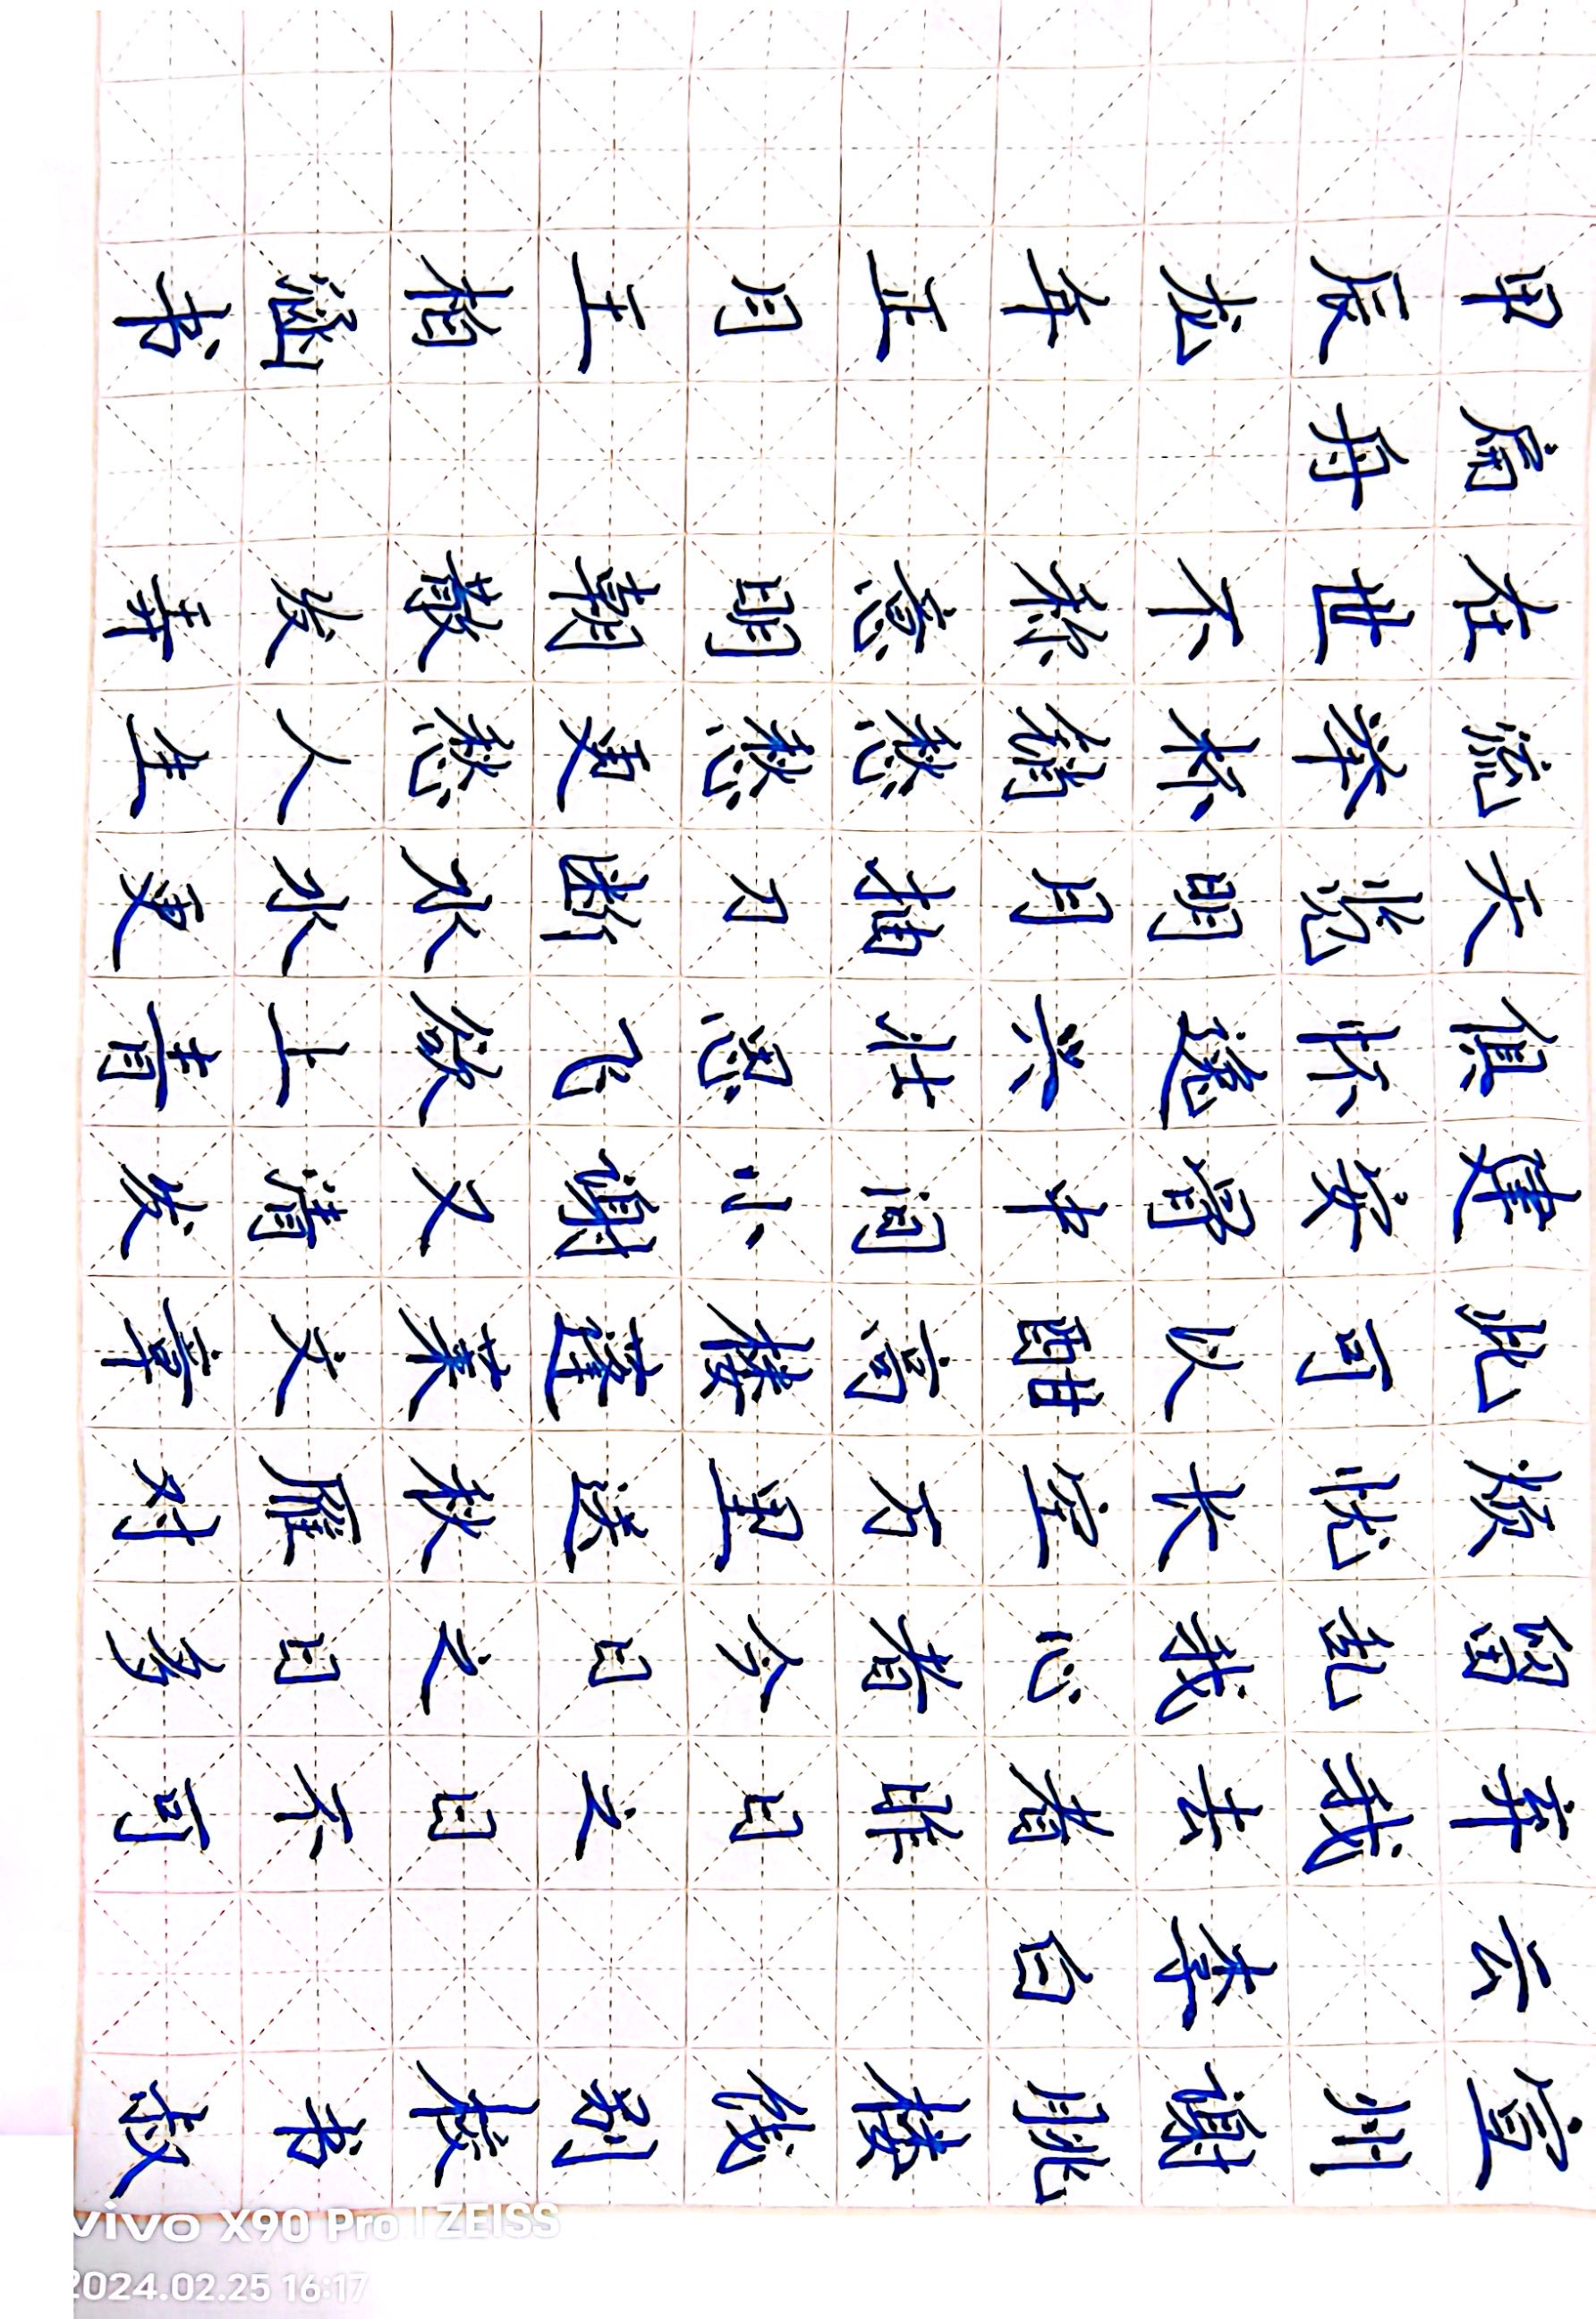 宣州谢朓楼饯别校书叔
云 李白
弃我去者昨日之日不可
留乱我心者今日之日多
烦忧长空万里送秋雁对
此可以酣高楼蓬莱文章
建安骨中间小谢又清发
俱怀逸兴壮思飞欲上青
天览明月抽刀断水水更
流举杯销愁愁更愁人生
在世不称意明朝散发弄
扁舟
甲辰龙年正月王书
vivo X90 Pro | ZEISS
2024.02.25 16:17